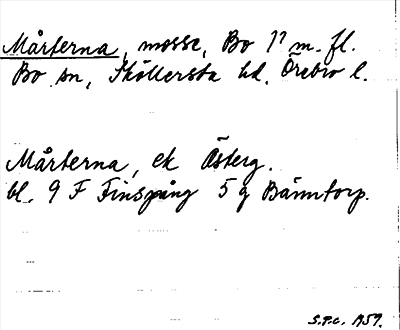 Mårterna, mosse, Bo 1⁷ m. fl.
Bo sn, Sköllersta hd, Örebro l.
Mårterna, ek Österg.
bl. 9 F Finspång 5 g Bänntorp.
S.P.C. 1959.